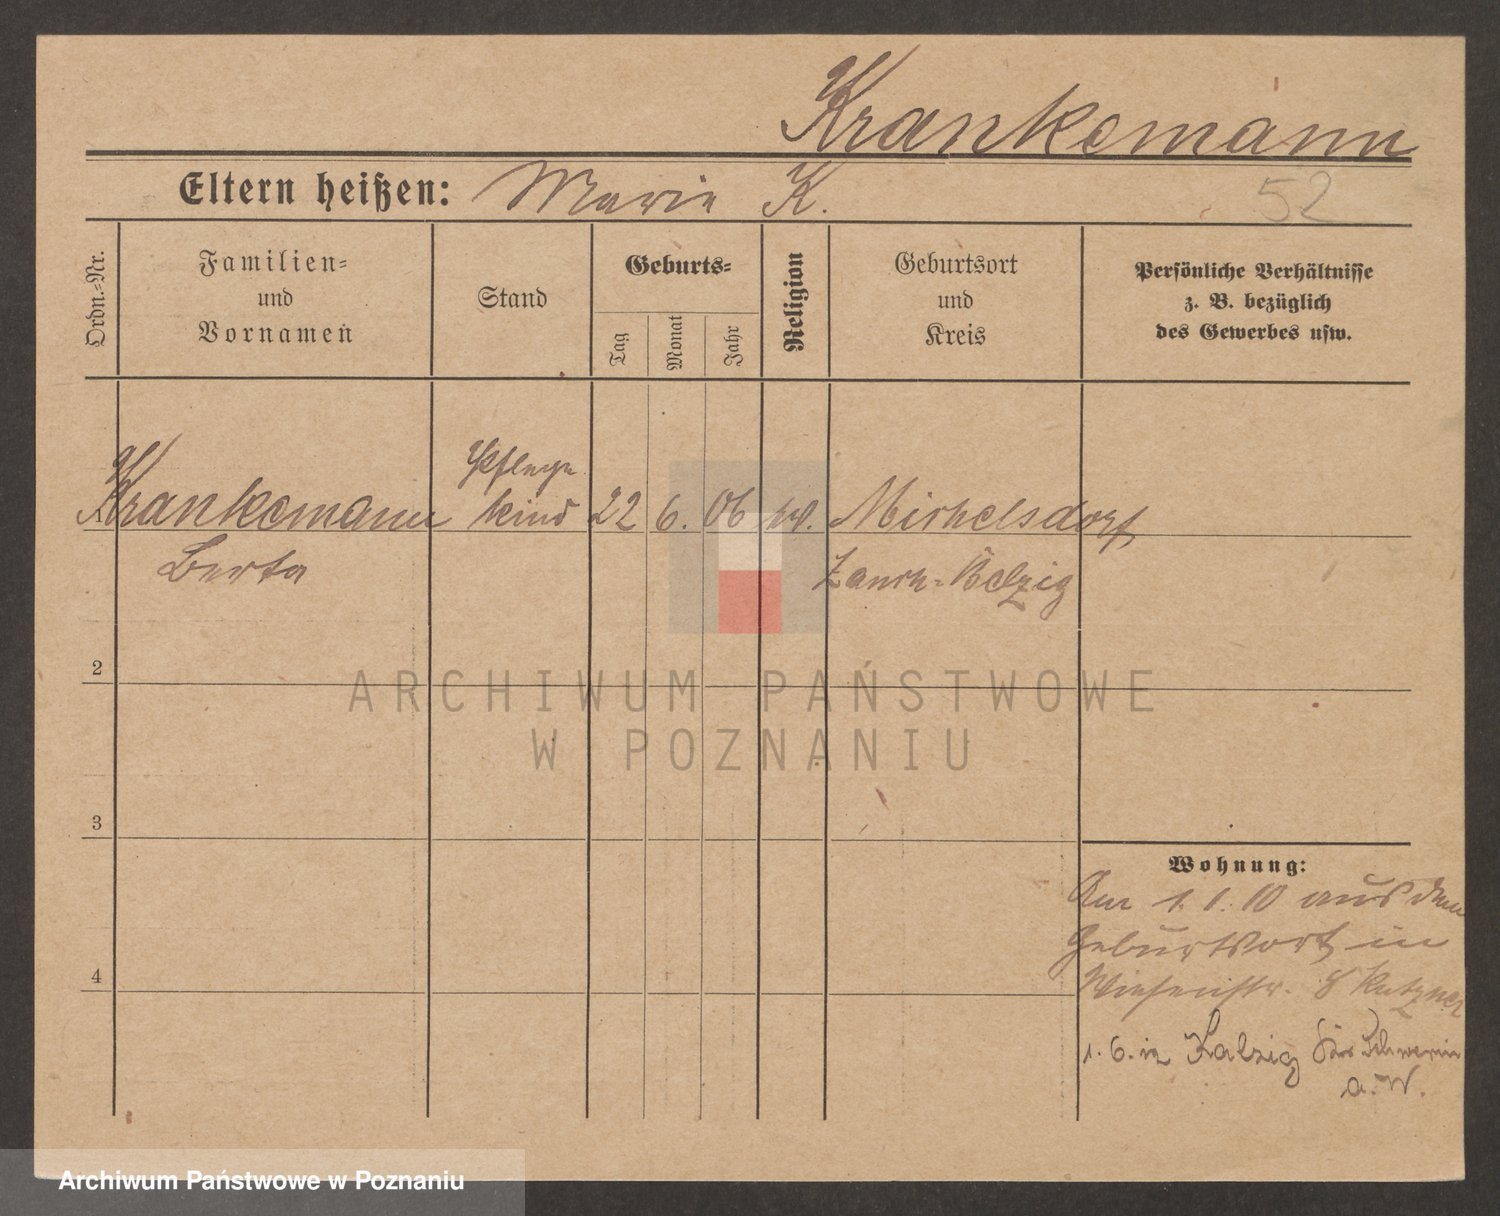 Krankemann
Eltern heißen: Marie K.
52
Ordn.-Nr.
Familien-
und
Vornamen
Stand
Geburts-
Tag
Monat
Jahr
Religion
Geburtsort
und
Kreis
Persönliche Verhältnisse
z. B. bezüglich
des Gewerbes usw.
Krankemann
Berta
Pflege
kind
22 6. 06 ev.
Michelsdorf
Zauch-Belzig
2
3
4
Wohnung:
Am 1. 1. 10 aus dem
Geburtsort in
Wiesenstr. 8 Kutzner
1. 6. in Kalzig Krs Schwerin
a. W.
ARCHIWUM PAŃSTWOWE
W POZNANIU
Archiwum Państwowe w Poznaniu